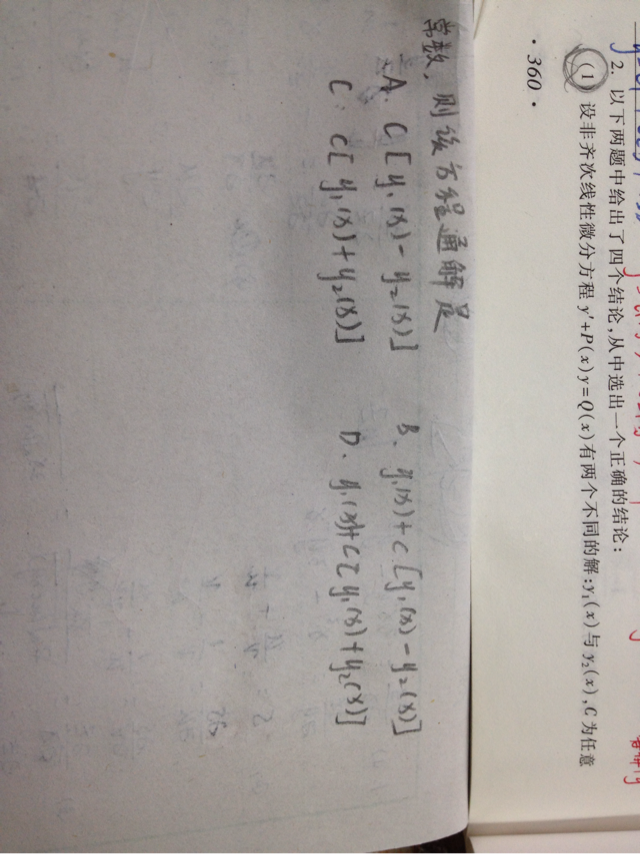 2. 以下两题中给出了四个结论,从中选出一个正确的结论:
(1) 设非齐次线性微分方程 y′+P(x)y=Q(x)有两个不同的解:y₁(x)与 y₂(x),C 为任意
· 360 ·
常数,则该方程通解是
A. C[y₁(x)-y₂(x)] B. y₁(x)+C[y₁(x)-y₂(x)]
C. C[y₁(x)+y₂(x)] D. y₁(x)+C[y₁(x)+y₂(x)]